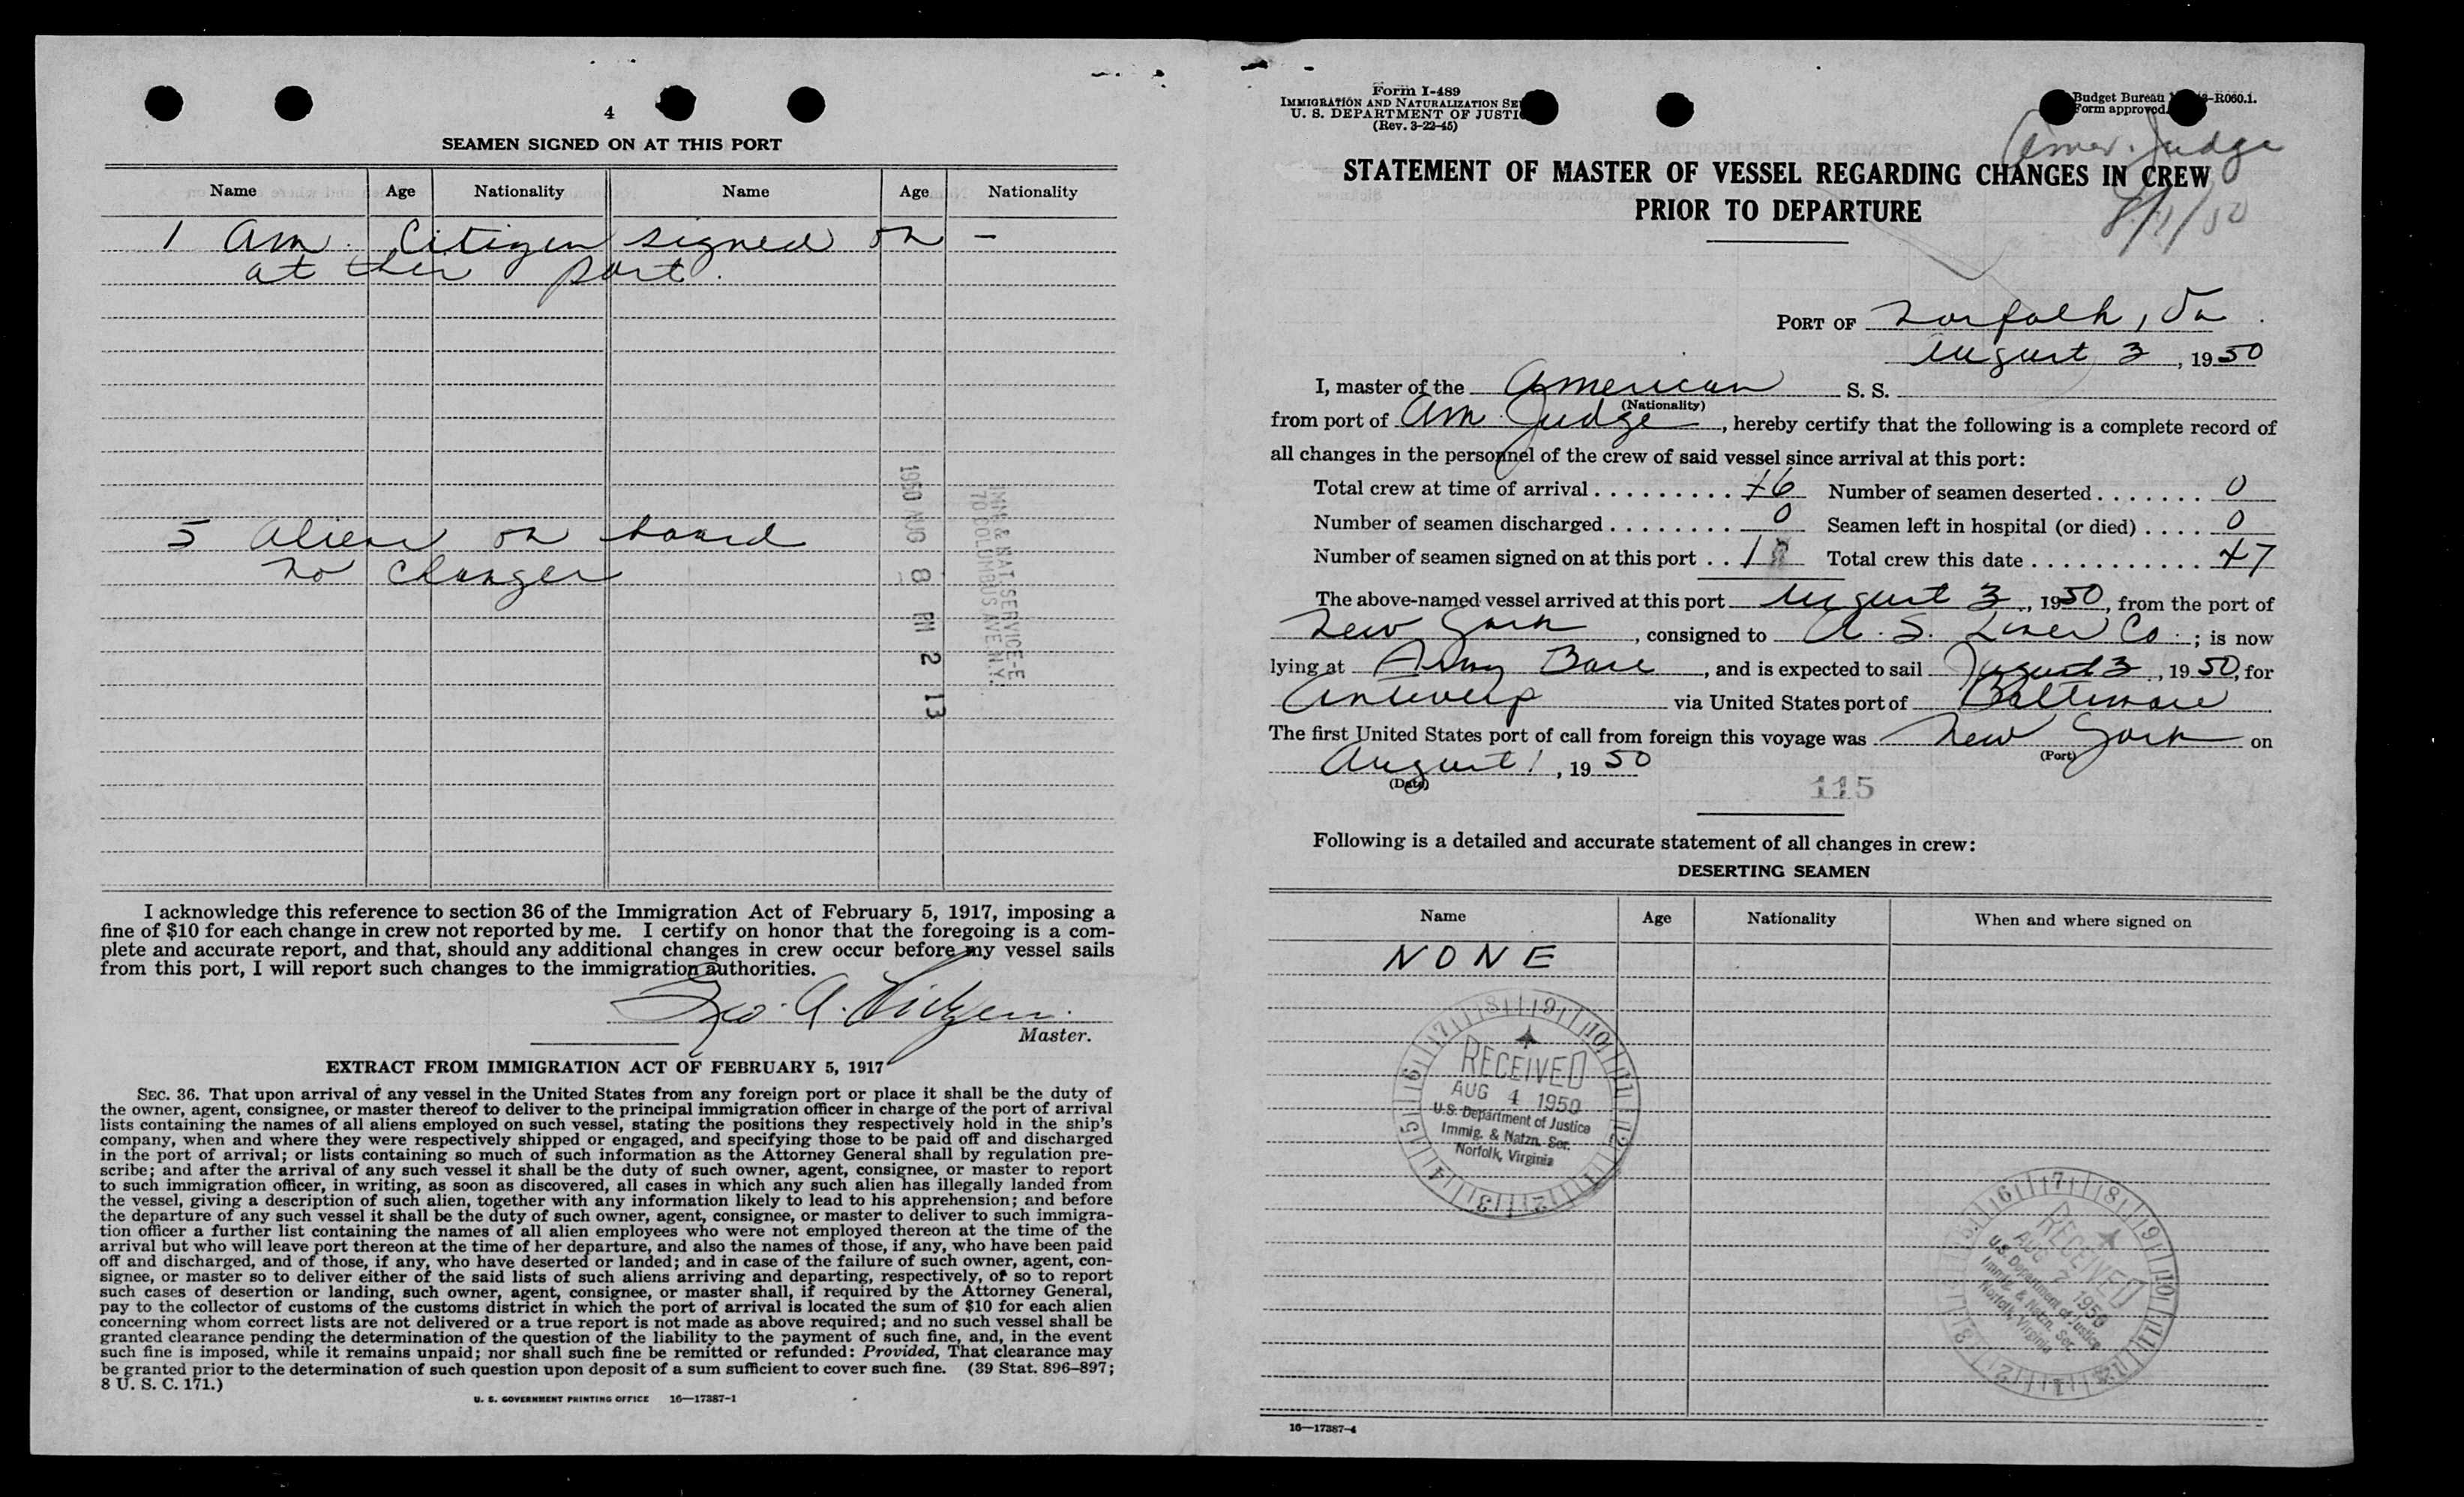 4
SEAMEN SIGNED ON AT THIS PORT
Name Age Nationality Name Age Nationality
1 Am. Citizen signed on –
at this port.
5 Aliens on board
No changes
IMM & NAT SERVICE-E
70 COLUMBUS AVE N.Y.
1950 AUG 8 PM 2 13
I acknowledge this reference to section 36 of the Immigration Act of February 5, 1917, imposing a
fine of $10 for each change in crew not reported by me. I certify on honor that the foregoing is a com-
plete and accurate report, and that, should any additional changes in crew occur before my vessel sails
from this port, I will report such changes to the immigration authorities.
Geo. A.
Master.
EXTRACT FROM IMMIGRATION ACT OF FEBRUARY 5, 1917
SEC. 36. That upon arrival of any vessel in the United States from any foreign port or place it shall be the duty of
the owner, agent, consignee, or master thereof to deliver to the principal immigration officer in charge of the port of arrival
lists containing the names of all aliens employed on such vessel, stating the positions they respectively hold in the ship's
company, when and where they were respectively shipped or engaged, and specifying those to be paid off and discharged
in the port of arrival; or lists containing so much of such information as the Attorney General shall by regulation pre-
scribe; and after the arrival of any such vessel it shall be the duty of such owner, agent, consignee, or master to report
to such immigration officer, in writing, as soon as discovered, all cases in which any such alien has illegally landed from
the vessel, giving a description of such alien, together with any information likely to lead to his apprehension; and before
the departure of any such vessel it shall be the duty of such owner, agent, consignee, or master to deliver to such immigra-
tion officer a further list containing the names of all alien employees who were not employed thereon at the time of the
arrival but who will leave port thereon at the time of her departure, and also the names of those, if any, who have been paid
off and discharged, and of those, if any, who have deserted or landed; and in case of the failure of such owner, agent, con-
signee, or master so to deliver either of the said lists of such aliens arriving and departing, respectively, or so to report
such cases of desertion or landing, such owner, agent, consignee, or master shall, if required by the Attorney General,
pay to the collector of customs of the customs district in which the port of arrival is located the sum of $10 for each alien
concerning whom correct lists are not delivered or a true report is not made as above required; and no such vessel shall be
granted clearance pending the determination of the question of the liability to the payment of such fine, and, in the event
such fine is imposed, while it remains unpaid; nor shall such fine be remitted or refunded: Provided, That clearance may
be granted prior to the determination of such question upon deposit of a sum sufficient to cover such fine. (39 Stat. 896–897;
8 U. S. C. 171.)
U. S. GOVERNMENT PRINTING OFFICE 16—17387-1
Form I-489
IMMIGRATION AND NATURALIZATION SE
U. S. DEPARTMENT OF JUSTI
(Rev. 3-22-45)
Budget Bureau -R060.1.
Form approved.
Amer. Judge
8/1/50
STATEMENT OF MASTER OF VESSEL REGARDING CHANGES IN CREW
PRIOR TO DEPARTURE
PORT OF Norfolk, Va.
August 3, 1950
I, master of the American S. S.
(Nationality)
from port of Am. Judge, hereby certify that the following is a complete record of
all changes in the personnel of the crew of said vessel since arrival at this port:
Total crew at time of arrival 46 Number of seamen deserted 0
Number of seamen discharged 0 Seamen left in hospital (or died) 0
Number of seamen signed on at this port 1 Total crew this date 47
The above-named vessel arrived at this port August 3, 1950, from the port of
New York, consigned to A. S. Lines Co.; is now
lying at Army Base, and is expected to sail August 3, 1950, for
Antwerp via United States port of Baltimore
The first United States port of call from foreign this voyage was New York on
(Port)
August 1, 1950
(Date)
115
Following is a detailed and accurate statement of all changes in crew:
DESERTING SEAMEN
Name Age Nationality When and where signed on
NONE
RECEIVED
AUG 4 1950
U.S. Department of Justice
Immig. & Natzn. Ser.
Norfolk, Virginia
RECEIVED
AUG 7 1950
U.S. Department of Justice
Immig. & Natzn. Ser.
Norfolk, Virginia
16—17387-4